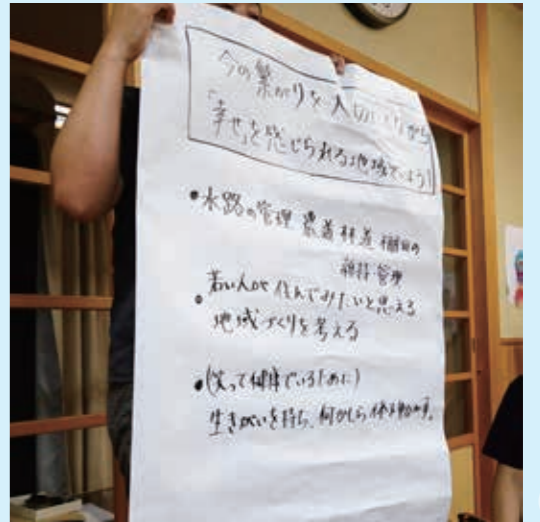 今の繋がりを大切にしながら
「幸せ」を感じられる地域でいよう!
•水路の管理 農道 林道 棚田の
維持・管理
•若い人が住んでみたいと思える
地域づくりを考える
•(笑って健康でいるために)
生きがいを持ち、何かしら体を動かす。